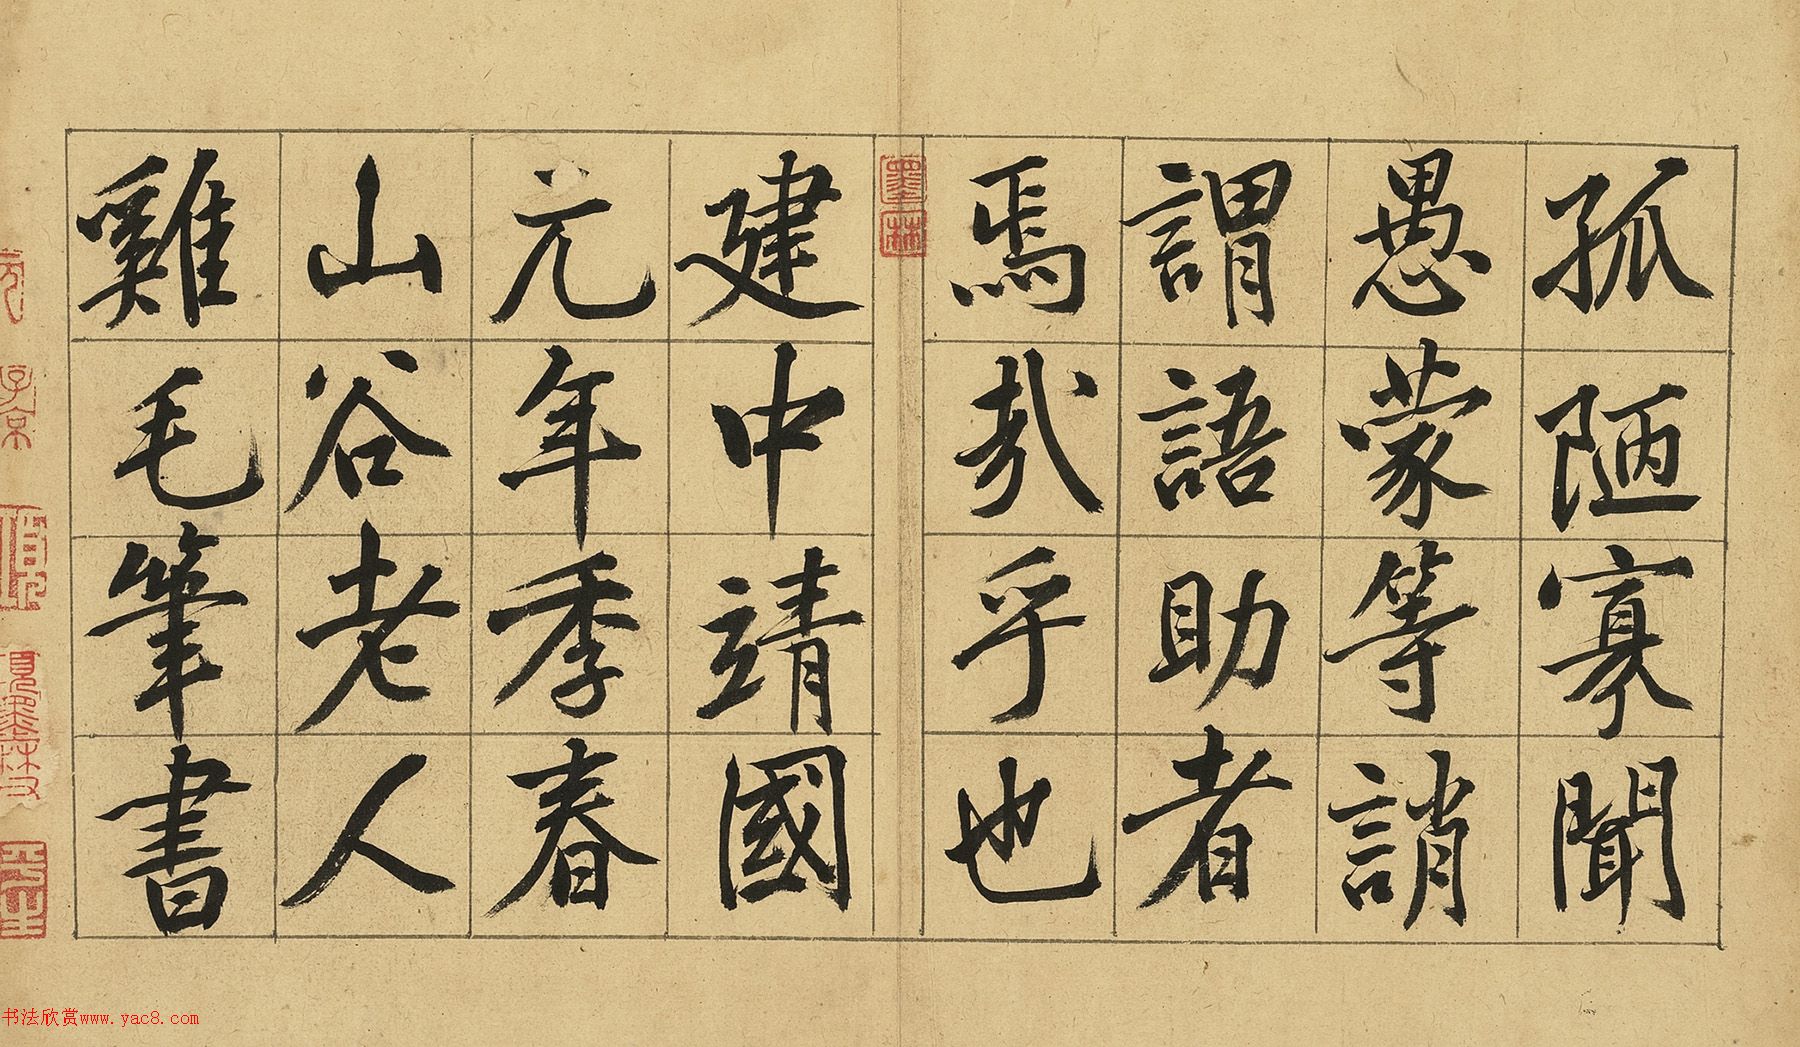 孤陋寡聞
愚蒙等誚
謂語助者
焉哉乎也
墨林
建中靖國
元年季春
山谷老人
雞毛筆書
子京
书法欣赏www.yac8.com